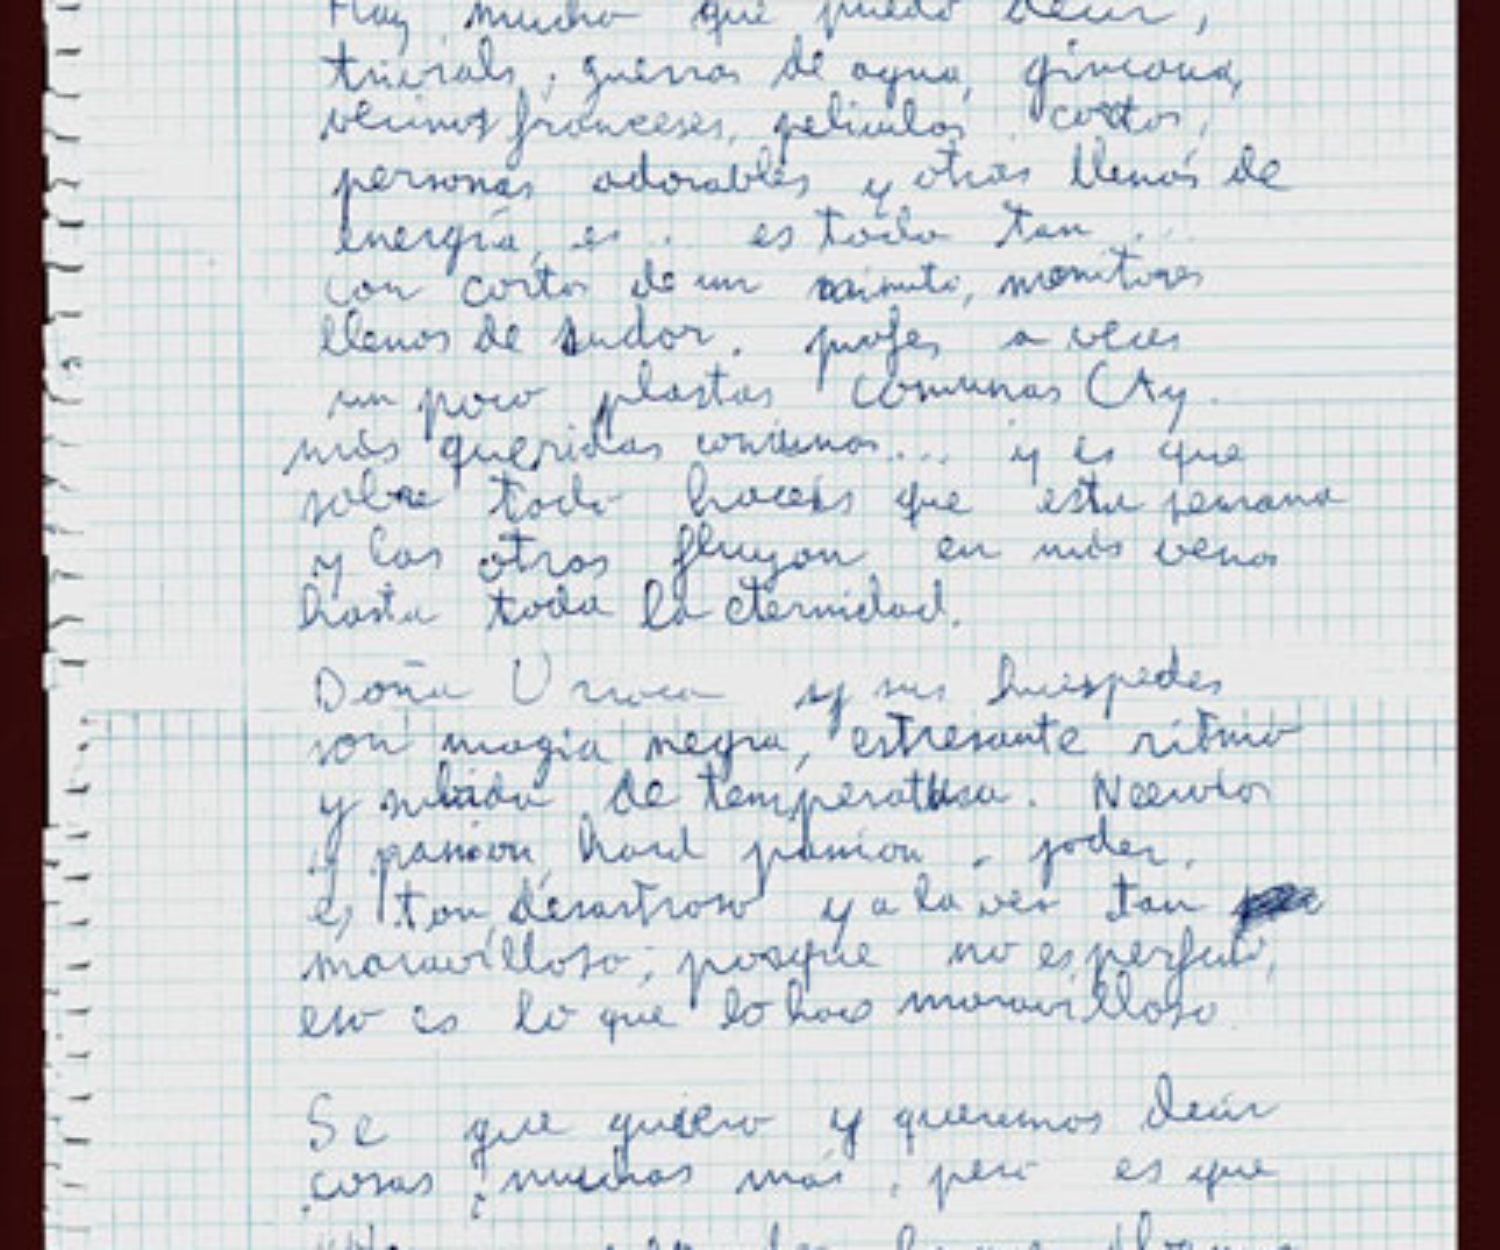 Hay mucho que puedo decir,
trivials, guerras de agua, gincana,
vecinos franceses, peliculas, cortos,
personas adorables y otras llenas de
energía, es... es todo tan...
con cortos de un minuto, monitores
llenos de sudor, profes a veces
un poco plastas comunas (Ay
mis queridas comunas... y es que
sobre todo haceis que esta semana
y las otras fluyan en mis venas
hasta toda la eternidad.
Doña Urraca y sus huespedes
son magia negra, estresante ritmo
y subida de temperatura. Nervios
y pasion, hard pasion, joder,
es tan desastroso y a la vez tan
maravilloso, porque no es perfecto,
eso es lo que lo hace maravilloso
Se que quiero y queremos decir
cosas muchas más, pero es que